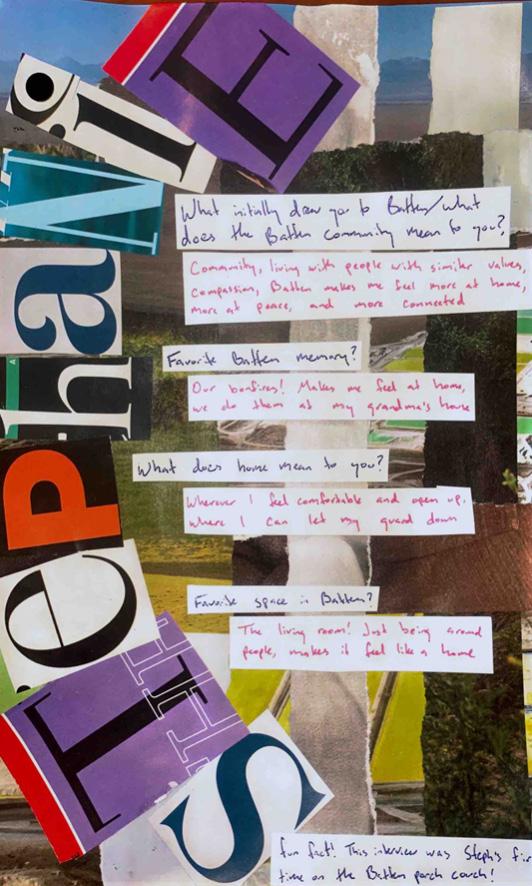 STePhaNiE
What initially drew you to Batten/what
does the Batten community mean to you?
Community, living with people with similar values,
compassion, Batten makes me feel more at home,
more at peace, and more connected
Favorite Batten memory?
Our bonfires! Makes me feel at home,
we do them at my grandma's house
What does home mean to you?
Wherever I feel comfortable and open up,
where I can let my guard down
Favorite space in Batten?
The living room! Just being around
people, makes it feel like a home
fun fact! This interview was Steph's fir
time on the Batten porch couch!